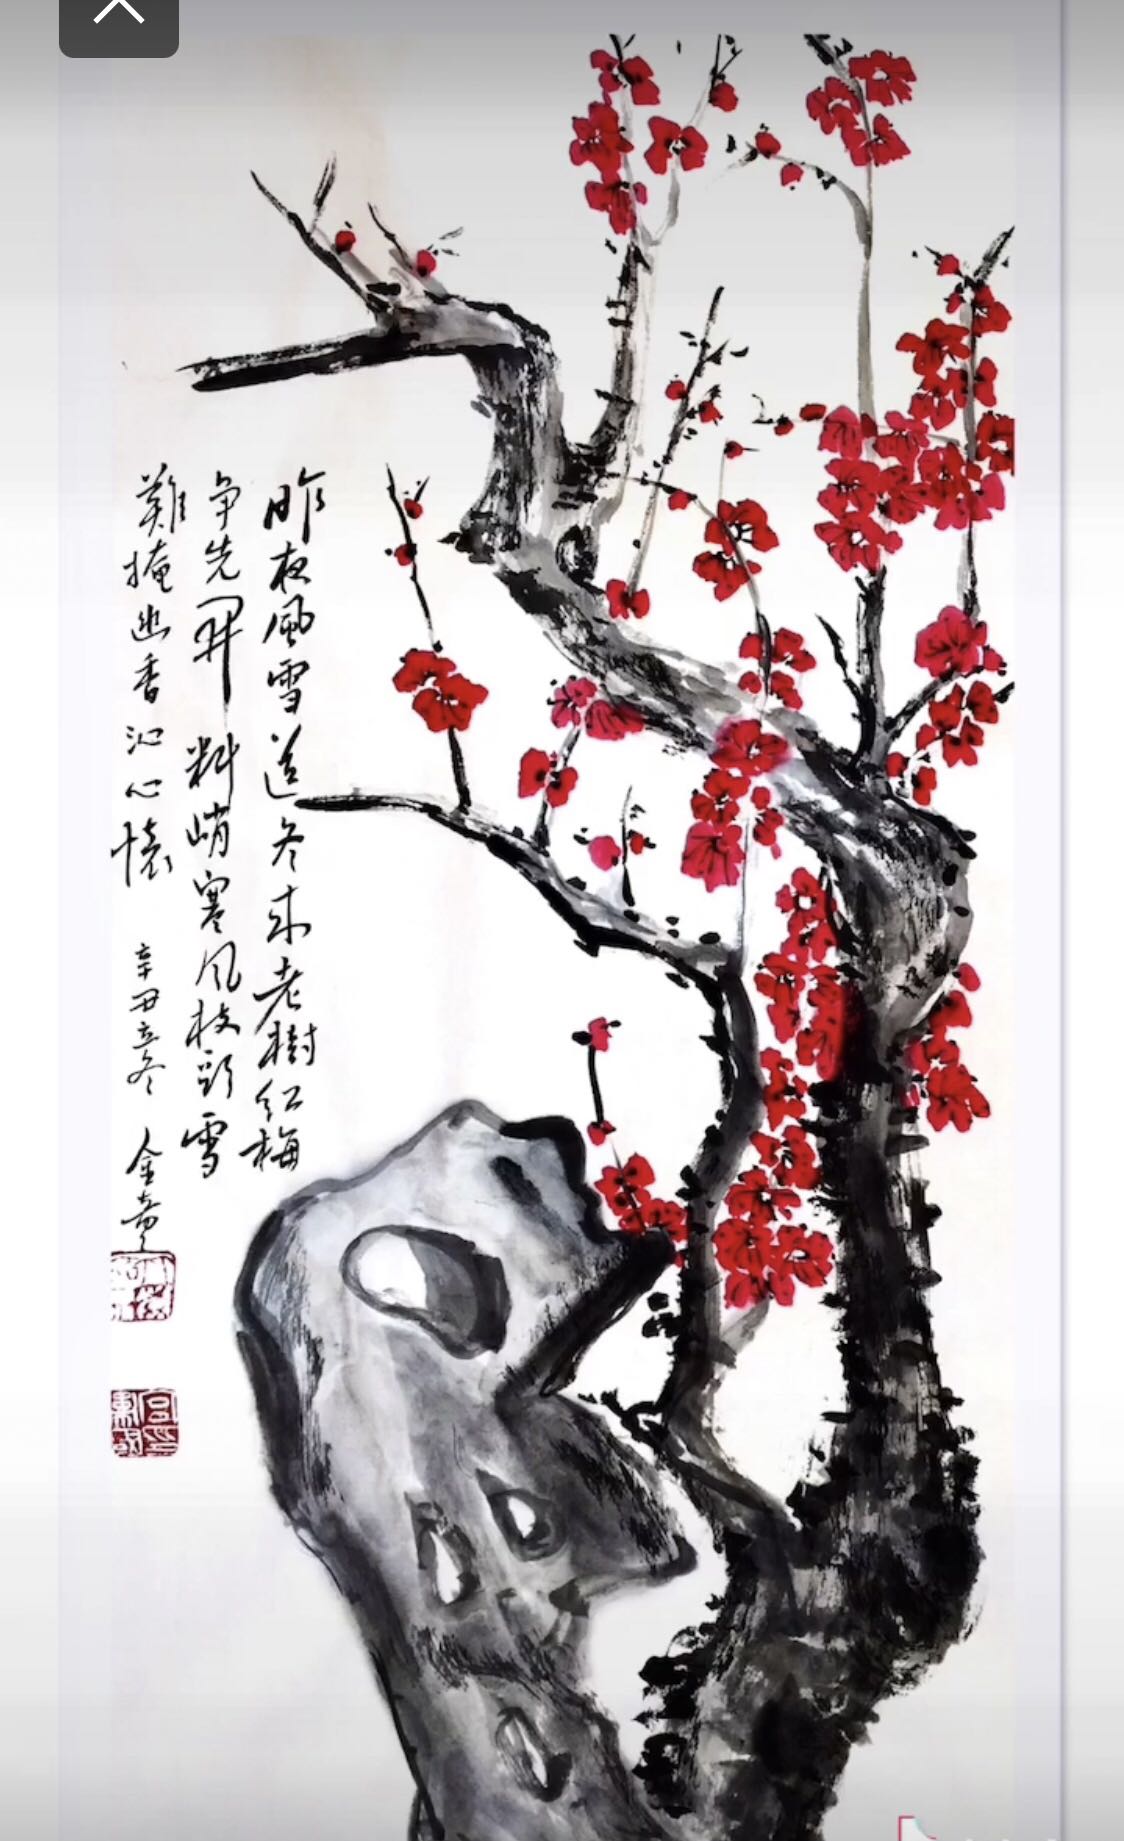 昨夜风雪送冬来老樹红梅
争先開料峭寒风枝頭雪
難掩幽香沁心懷
辛丑立冬